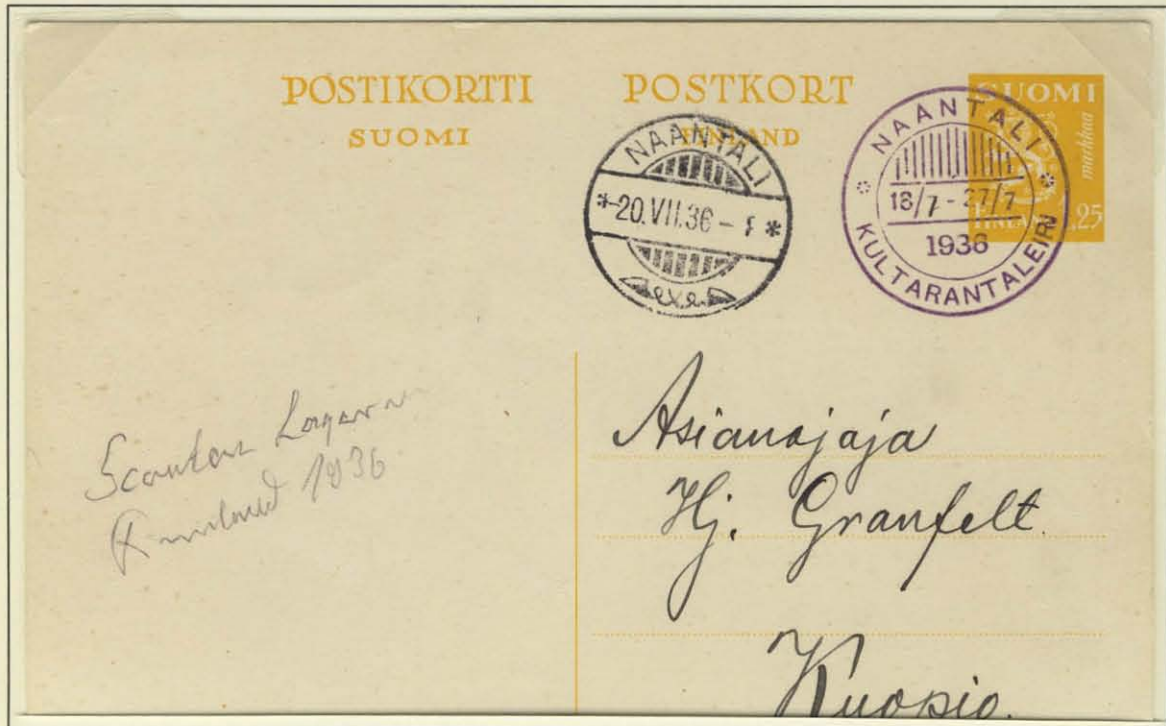 POSTIKORTTI
SUOMI
POSTKORT
FINLAND
SUOMI
markkaa
FINLAND
1,25
NAANTALI
20.VII.36
NAANTALI
18/7 - 27/7
1936
KULTARANTALEIRI
1936
Asianajaja
Hj. Granfelt
Kuopio.